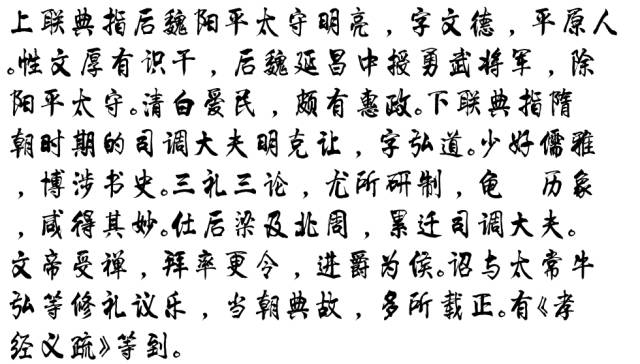 上联典指后魏阳平太守明亮，字文德，平原人
。性文厚有识干，后魏延昌中授勇武将军，除
阳平太守。清白爱民，颇有惠政。下联典指隋
朝时期的司调大夫明克让，字弘道。少好儒雅
，博涉书史。三礼三论，尤所研制，龟 历象
，咸得其妙。仕后梁及北周，累迁司调大夫。
文帝受禅，拜率更令，进爵为侯。诏与太常牛
弘等修礼议乐，当朝典故，多所裁正。有《孝
经义疏》等到。